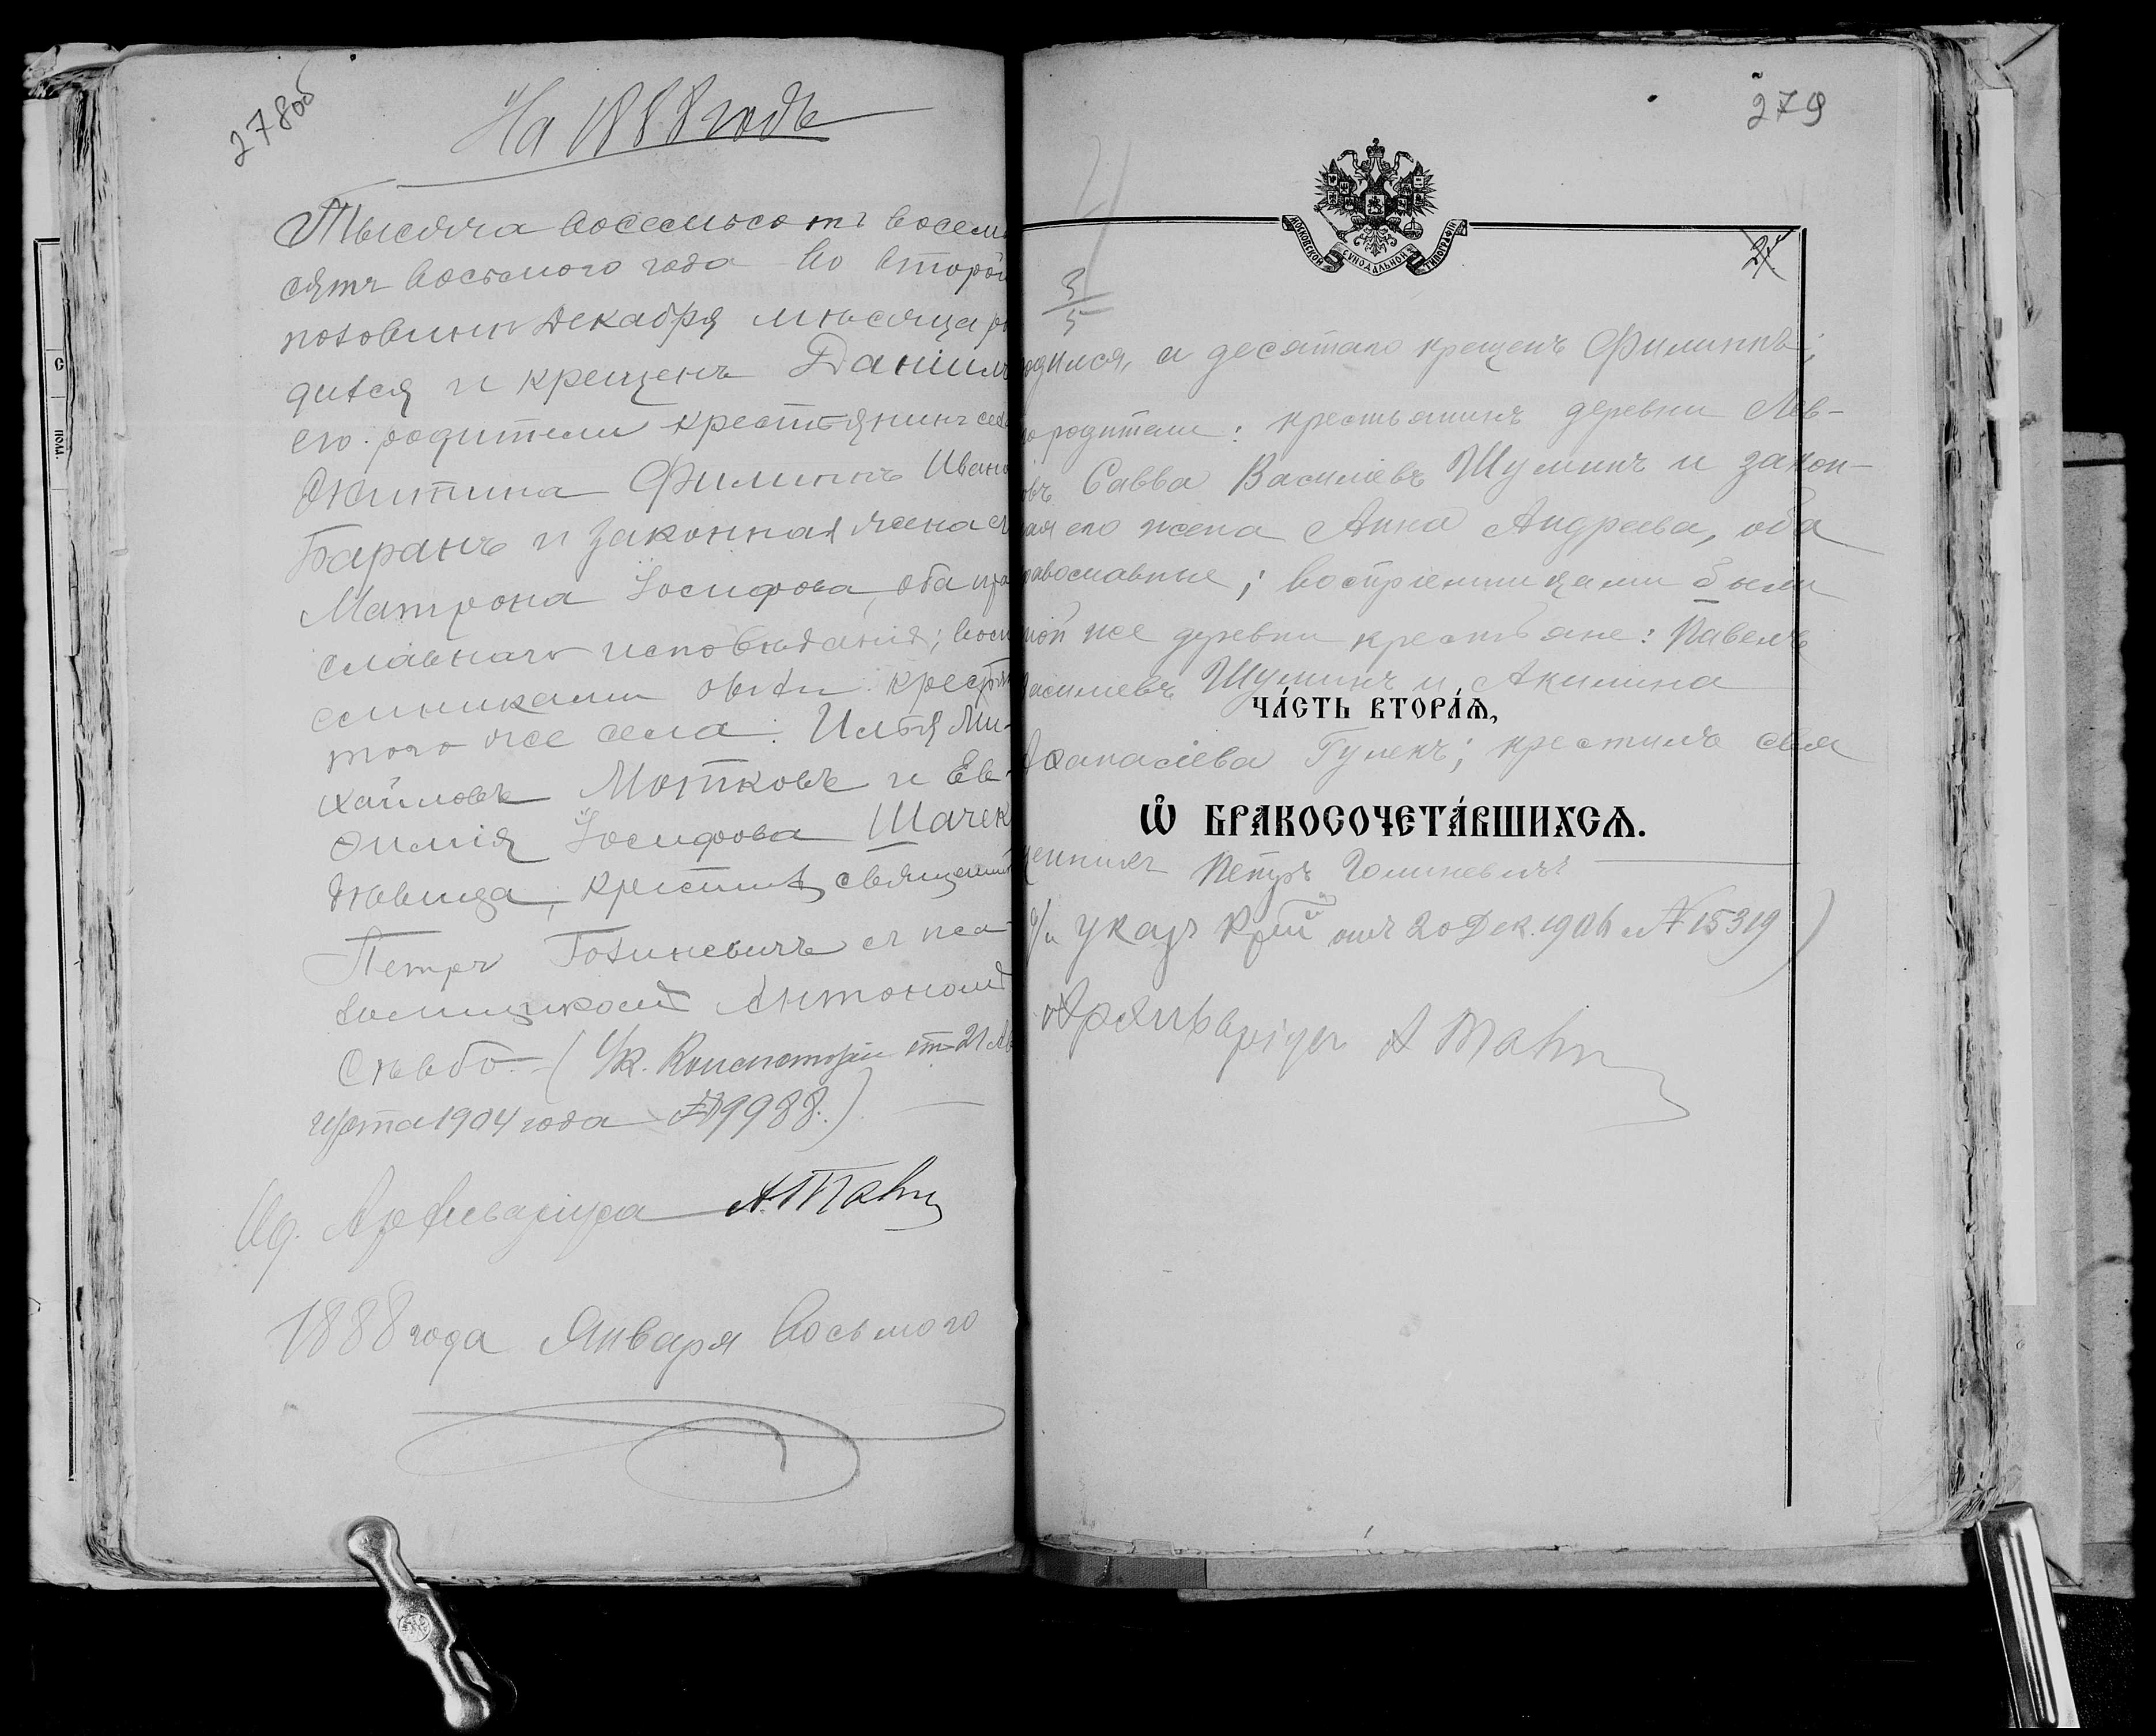 278об
На 1888 годъ
Тысяча восемьсотъ восемь
сятъ восьмого года во второй
половинѣ Декабря мѣсяца ро
дился и крещенъ Даніилъ
его родители крестьянинъ села
Филиппъ Ивано
Баранъ и законная жена его
Матрона Іосифова, оба пра
славнаго исповѣданія; воспр
емниками были крестьяне
того же села: Илья Ми-
хайловъ Мотковъ и Ев-
фимія Іосифова Шачек
дѣвица, крестилъ священн
Петръ Голиневичъ съ пса-
ломщикомъ Антономъ
(У/к. Консисторіи отъ 21 Ав
густа 1904 года № 9988.)
Ид. Архиваріуса
1888 года Января восьмого
279
21
3
5
МОСКОВСКОЙ СѴНОДАЛЬНОЙ ТИПОГРАФІИ
одился, а десятаго крещенъ Филиппъ;
го родители: крестьянинъ деревни Лев-
овъ Савва Василіевъ Шуминъ и закон-
ная его жена Анна Андреева, оба
равославные; воспріемницами были
той же деревни крестьяне: Павелъ
Василіевъ Шуминъ и Акилина
ЧА́СТЬ ВТОРА́Ѧ,
Аѳанасіева Гулекъ; крестилъ свя
Ѽ БРАКОСОЧЕТА́ВШИХСѦ.
щенникъ Петръ Голиневичъ
указъ отъ 20 Дек. 1906 г. № 15319)
Архиваріусъ
С
полл.